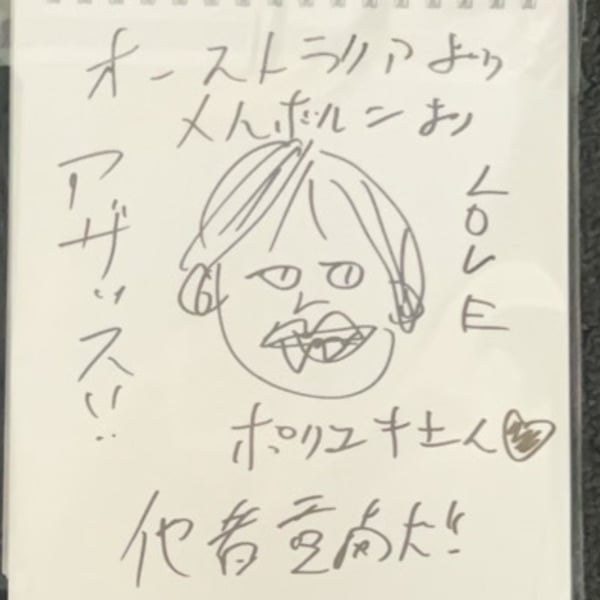 オーストラリアより
メルボルンより
アザッス!!
LOVE
ポリユキさん